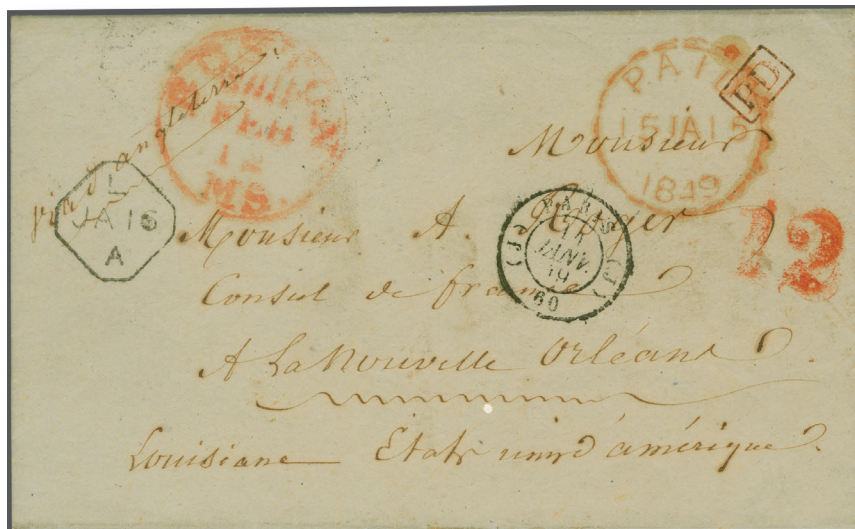 via d'angleterre
BOSTON
FEB
12
MS.
PAID
15 JA 15
1849
PD
L
JA 16
A
PARIS
JANV.
49
60
(J)
(J)
12
Monsieur
Monsieur A. Roger
Consul de france
A La Nouvelle Orléans
Louisiane Etats unis d'amérique